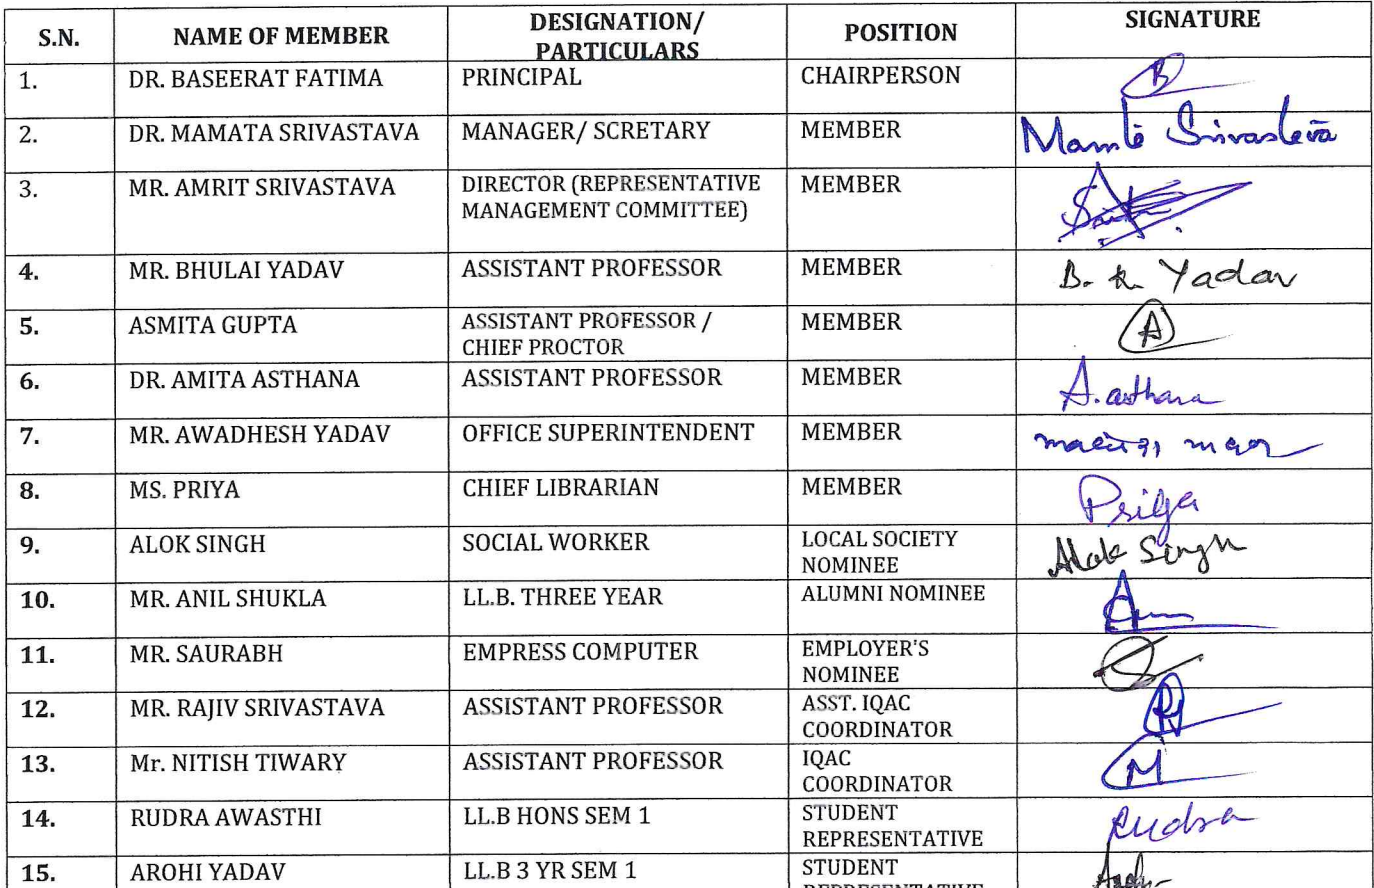 S.N. NAME OF MEMBER DESIGNATION/ PARTICULARS POSITION SIGNATURE
1. DR. BASEERAT FATIMA PRINCIPAL CHAIRPERSON B
2. DR. MAMATA SRIVASTAVA MANAGER/ SCRETARY MEMBER Srivasteva
3. MR. AMRIT SRIVASTAVA DIRECTOR (REPRESENTATIVE MEMBER
MANAGEMENT COMMITTEE)
4. MR. BHULAI YADAV ASSISTANT PROFESSOR MEMBER B. K. Yadav
5. ASMITA GUPTA ASSISTANT PROFESSOR / MEMBER A
CHIEF PROCTOR
6. DR. AMITA ASTHANA ASSISTANT PROFESSOR MEMBER A. asthana
7. MR. AWADHESH YADAV OFFICE SUPERINTENDENT MEMBER
8. MS. PRIYA CHIEF LIBRARIAN MEMBER Priya
9. ALOK SINGH SOCIAL WORKER LOCAL SOCIETY Alok Singh
NOMINEE
10. MR. ANIL SHUKLA LL.B. THREE YEAR ALUMNI NOMINEE
11. MR. SAURABH EMPRESS COMPUTER EMPLOYER'S
NOMINEE
12. MR. RAJIV SRIVASTAVA ASSISTANT PROFESSOR ASST. IQAC
COORDINATOR
13. Mr. NITISH TIWARY ASSISTANT PROFESSOR IQAC
COORDINATOR
14. RUDRA AWASTHI LL.B HONS SEM 1 STUDENT Rudra
REPRESENTATIVE
15. AROHI YADAV LL.B 3 YR SEM 1 STUDENT
REPRESENTATIVE